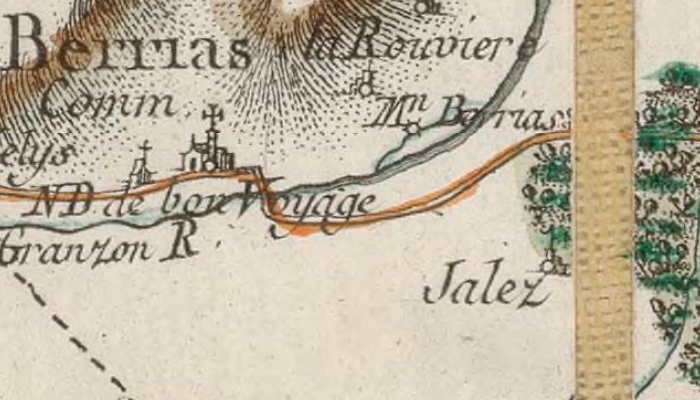 Berrias
la Rouviere
Comm.
Mn Berrias
elys
ND de bon Voyage
Granzon R.
Jalez